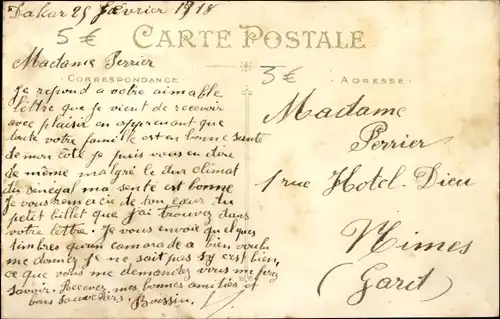 Dakar 25 Février 1918
5 €
CARTE POSTALE
Madame Perrier
3 €
CORRESPONDANCE
ADRESSE
Je repond a votre aimable
lettre que je vient de recevoir
avec plaisir en apprenant que
toute votre famille est en bonne sante
de mon côté je puis vous en dire
de même malgré le dur climat
du sinegal ma senté est bonne
Je vous remercie de ton cœur du
petit billet que j'ai trouvez dans
votre lettre. Je vous envoie quelques
timbres qu'un camarade a bien voulu
me donnez je ne sait pas s'y c'est bien
ce que vous me demandez vous me
savoir. Recevez mes bonnes amities et
bons souvenirs. Boissin
Madame
Perrier
1 rue Hotel-Dieu
Nimes
(Gard)